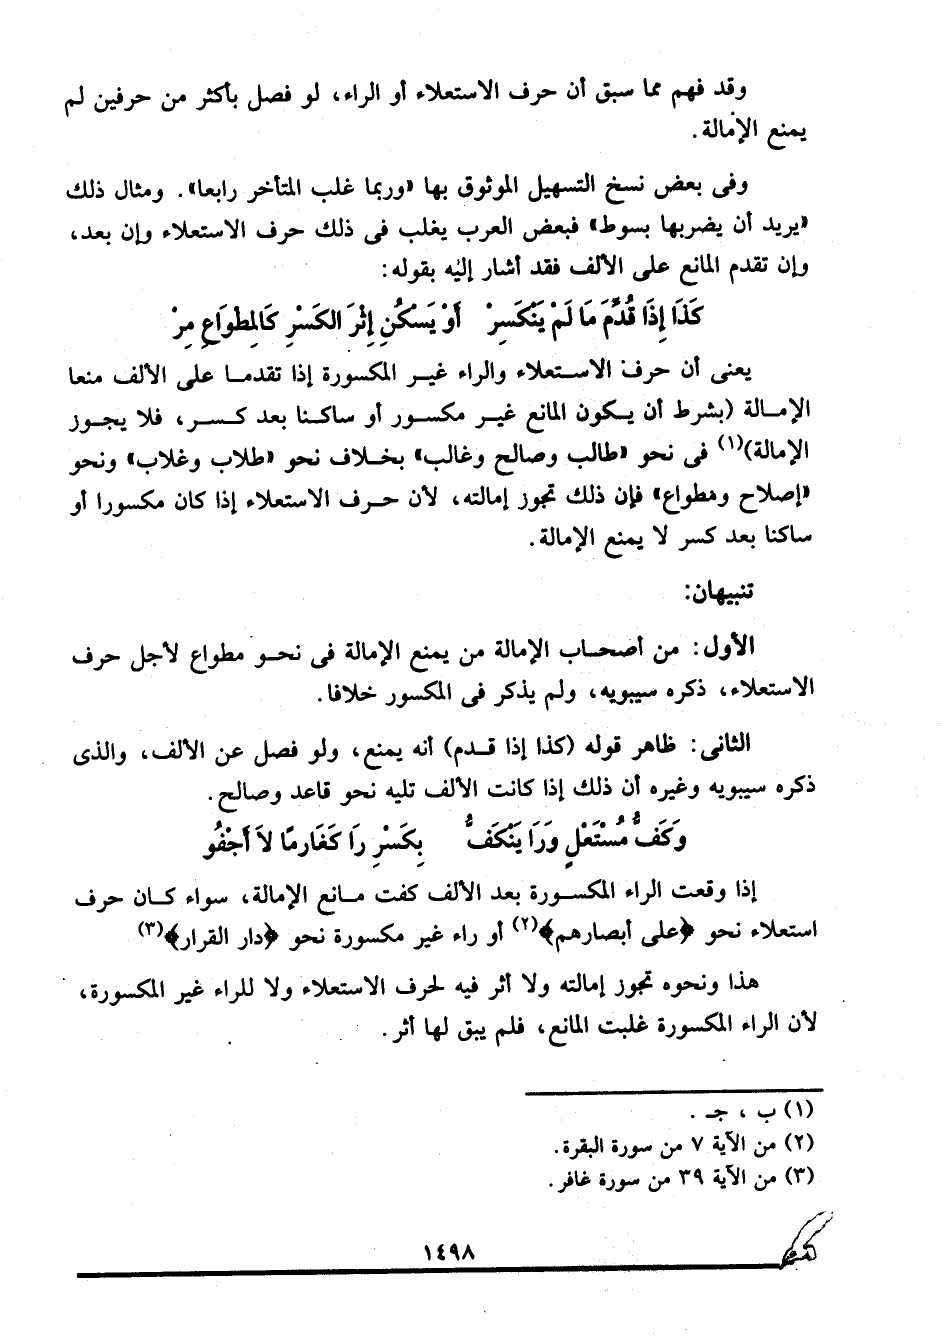 وقد فهم مما سبق أن حرف الاستعلاء أو الراء، لو فصل بأكثر من حرفين لم
يمنع الإمالة.
وفى بعض نسخ التسهيل الموثوق بها «وربما غلب المتأخر رابعا». ومثال ذلك
«يريد أن يضربها بسوط» فبعض العرب يغلب فى ذلك حرف الاستعلاء وإن بعد،
وإن تقدم المانع على الألف فقد أشار إليه بقوله:
كَذَا إِذَا قُدِّمَ مَا لَمْ يَنْكَسِرْ أَوْ يَسْكُنِ إِثْرَ الكَسْرِ كَالمِطْوَاعِ مِرْ
يعنى أن حرف الاستعلاء والراء غير المكسورة إذا تقدما على الألف منعا
الإمالة (بشرط أن يكون المانع غير مكسور أو ساكنا بعد كسر، فلا يجوز
الإمالة)(١) فى نحو «طالب وصالح وغالب» بخلاف نحو «طلاب وغلاب» ونحو
«إصلاح ومطواع» فإن ذلك تجوز إمالته، لأن حرف الاستعلاء إذا كان مكسورا أو
ساكنا بعد كسر لا يمنع الإمالة.
تنبيهان:
الأول: من أصحاب الإمالة من يمنع الإمالة فى نحو مطواع لأجل حرف
الاستعلاء، ذكره سيبويه، ولم يذكر فى المكسور خلافا.
الثانى: ظاهر قوله (كذا إذا قدم) أنه يمنع، ولو فصل عن الألف، والذى
ذكره سيبويه وغيره أن ذلك إذا كانت الألف تليه نحو قاعد وصالح.
وَكَفُّ مُسْتَعْلٍ وَرَا يَنْكَفُّ بِكَسْرِ رَا كَغَارِمًا لاَ أَجْفُو
إذا وقعت الراء المكسورة بعد الألف كفت مانع الإمالة، سواء كان حرف
استعلاء نحو ﴿على أبصارهم﴾(٢) أو راء غير مكسورة نحو ﴿دار القرار﴾(٣)
هذا ونحوه تجوز إمالته ولا أثر فيه لحرف الاستعلاء ولا للراء غير المكسورة،
لأن الراء المكسورة غلبت المانع، فلم يبق لها أثر.
(١) ب ، جـ .
(٢) من الآية ٧ من سورة البقرة.
(٣) من الآية ٣٩ من سورة غافر.
١٤٩٨